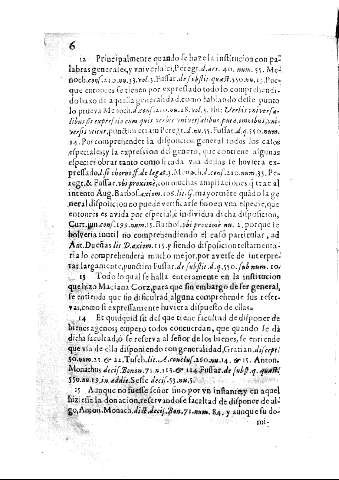 6
12 Principalmente quando se haze la institucion con pa-
labras generales, y vniversales, Peregr. d. art. 40. num. 55. Me-
noch. conf. 210. nu. 33. vol. 3. Fussar. de substit. quæst. 350. nu. 15. Por-
que entonces se tienen por expressado todo lo comprehendi-
do baxo de aquella generalidad, como hablando deste punto
lo prueva Menoch. d. conf. 210. nu. 28. vol. 3. ibi: Verbis universa-
libus sit expressio cum quis verbis universalibus puta, omnibus, uni-
versis utitur, punctim etiam Peregr. d. nu. 55. Fussar. d. q. 350. num.
14. Por comprehender la disposicion general todos los casos
especiales, y la expression del genero, que contiene algunas
especies obrar tanto como si toda vna dellas se huviera ex-
pressado, Menoch. d. conf. 210. num. 35. Pe-
regr. & Fussar. ubi proximè, con muchas ampliaciones q̃ trae al
intento Aug. Barbos. axiom. 105. lit. G. mayormente quãdo la ge
neral disposicion no puede verificarse sino en vna especie, que
entonces es avida por especial, e individua dicha disposicion,
Curt. jun. conf. 195. num. 15. Barbos. ubi proximè nu. 2. porque se
bolveria inutil no comprehendiendo el caso particular, ad
Ant. Dueñas lit. D. axiom. 115. y siendo disposicion testamenta-
ria lo comprehenderà mucho mejor, por averse de interpre-
tar largamente, punctim Fussar. de substit. d. q. 350. sub num. 10.
13 Todo lo qual se halla enteramente en la institucion
que hizo Mariana Corz, para que sin embargo de ser general,
se entienda que sin dificultad alguna comprehende sus reser-
vas, como si expressamente huviera dispuesto de ellas.
14 Et quidquid sit del que tiene facultad de disponer de
bienes agenos, empero todos concuerdan, que quando se dà
dicha facultad, ò se reserva al señor de los bienes, se entiende
que vsa de ella disponiendo con generalidad, Gratian. discept.
50. num. 25. & 22. Tusch. lit. conclus. 260. nu. 14. & 15. Anton.
Monachus decis. Bonon. 71. n. 113. & 114. Fussar. de subst. q. quæst.
550. nu. 13. in addit. Sesse decis. 53. nu. 5.
15 Aunque no fuesse señor sino por vn instante, y en aquel
hiziesse la donacion, reservandose facultad de disponer de al-
go, Anton. Monach. dict. decis. Bon. 71. num. 84. y aunque su do-
mi-